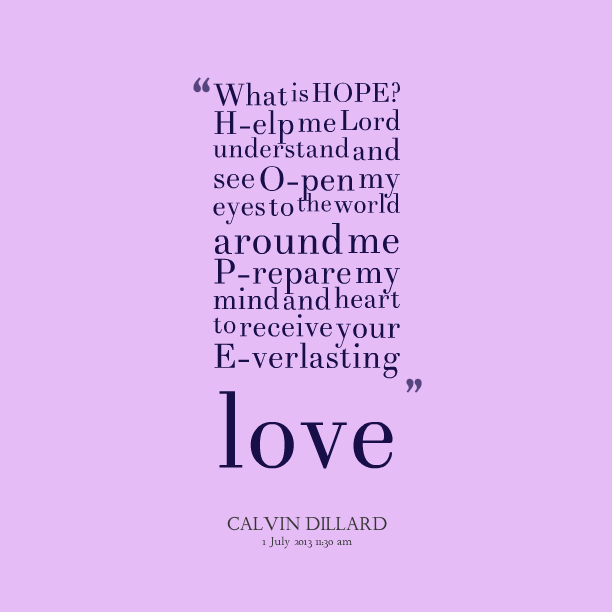 “What is HOPE?
H-elp me Lord
understand and
see O-pen my
eyes to the world
around me
P-repare my
mind and heart
to receive your
E-verlasting
love”
CALVIN DILLARD
1 July 2013 11:30 am